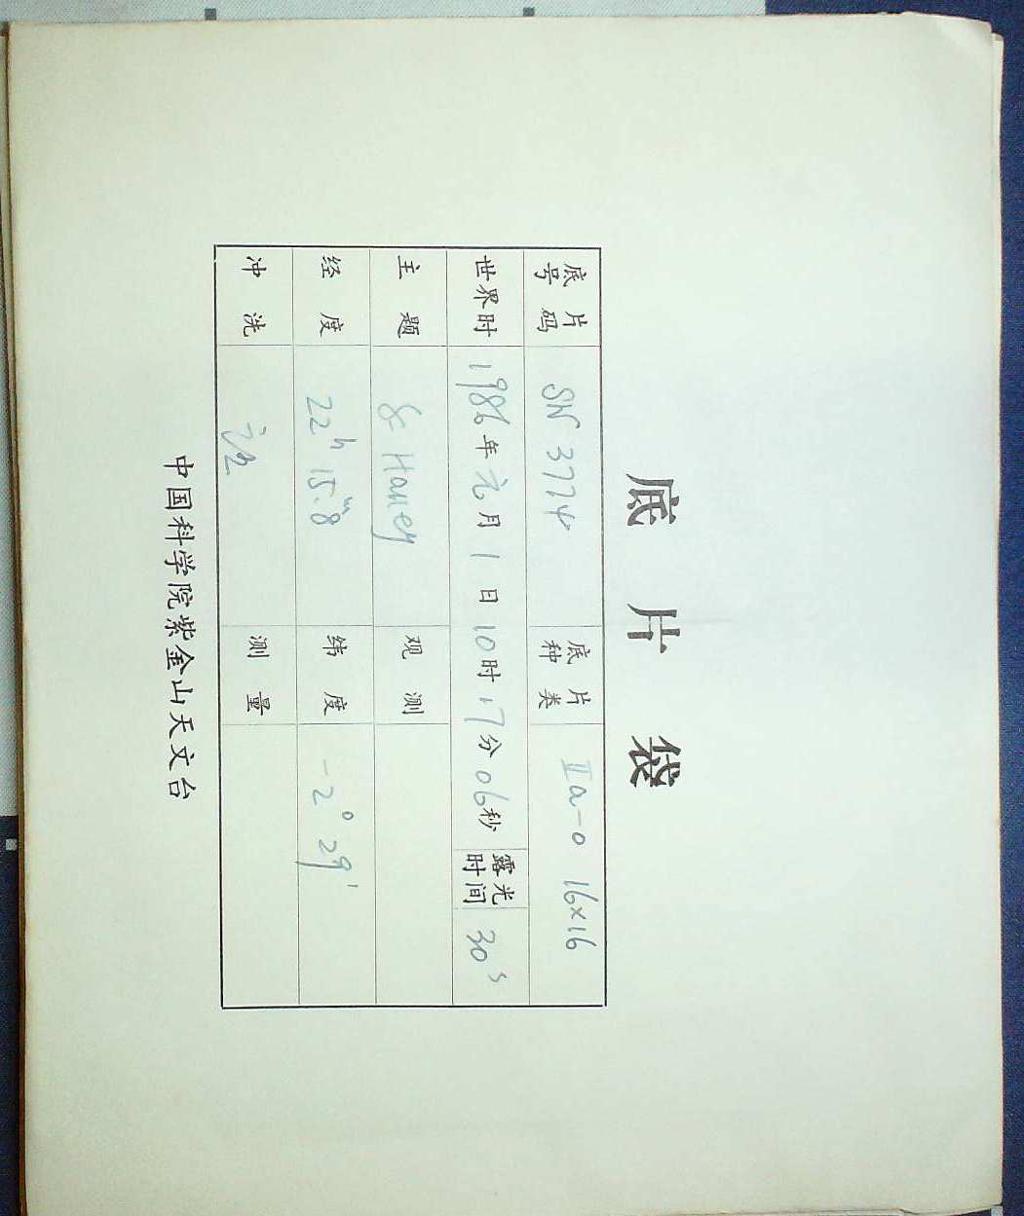 底片袋
底片号码 SN 3774 底片种类 IIa-o 16×16
世界时 1986年元月1日10时17分06秒 露光时间 30s
主题 & Halley 观测
经度 22h 15m.8 纬度 -2° 29'
冲洗 测量
中国科学院紫金山天文台